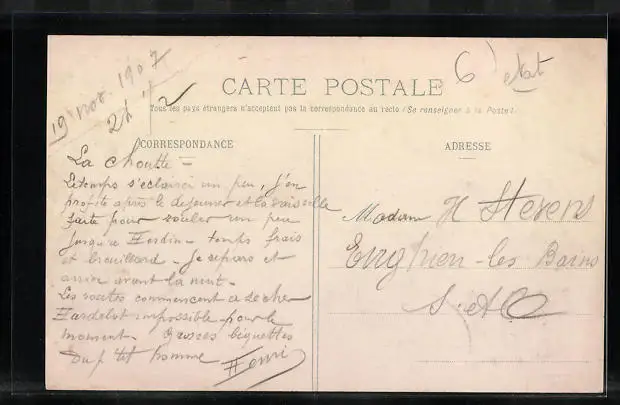 19 nov. 1907
2h
6
état
CARTE POSTALE
Tous les pays étrangers n'acceptent pas la correspondance au recto (Se renseigner à la Poste).
CORRESPONDANCE
ADRESSE
La choutte -
Le temps s'eclairci un peu, j'en
profite après le dejeuner et la vaisselle
faite pour rouler un peu
jusqu'a Hesdin - temps frais
et brouillard - Je repars et
arrive avant la nuit -
Les routes commencent a secher
Hardelot impossible pour le
moment - Grosses biquettes
du p'tit homme
Henri
Madam H Stevens
Enghien-les Bains
S. et O.